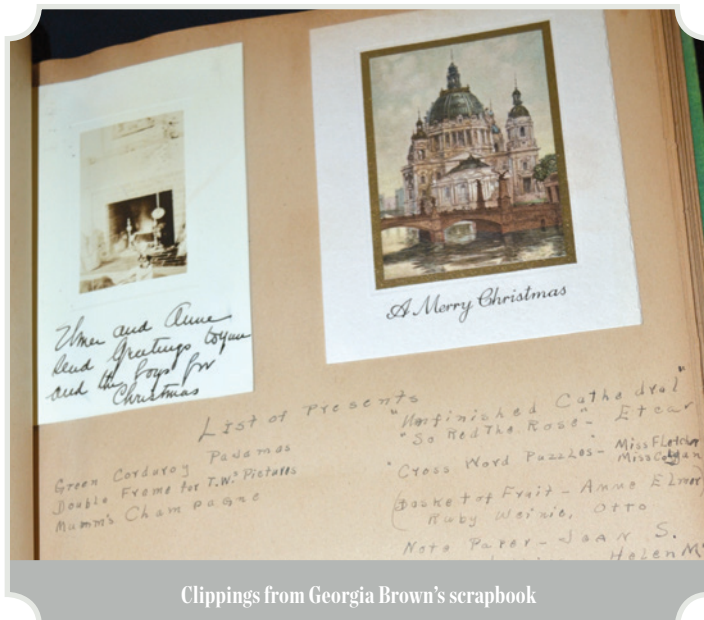 Elmer and Anne
send Greetings to you
and the boys for
Christmas
A Merry Christmas
List of Presents
Green Corduroy Pajamas
Double Frame for T.W.'s Pictures
Mumm's Champagne
"Unfinished Cathedral"
"So Red The Rose" - Etear
"Cross Word Puzzles" - Miss Fletcher
Miss
(Basket of Fruit - Anne Elmer)
Ruby Weinie, Otto
Note Paper - Jean S.
Helen M
Clippings from Georgia Brown's scrapbook